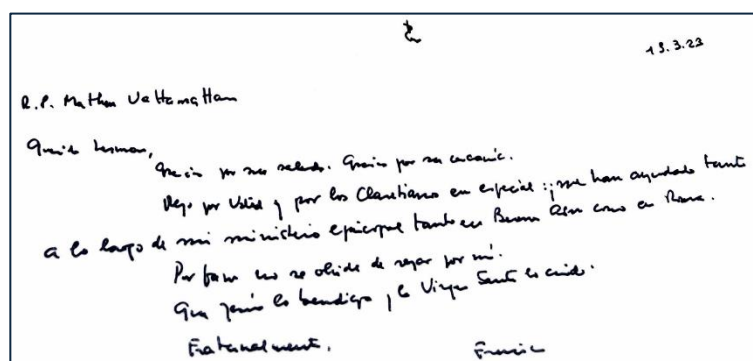 13.3.23
R.P. Mathew Vattamattam
Querido hermano,
Gracias por sus saludo. Gracias por su cercanía.
Rezo por Usted y por los Claretianos en especial: ¡me han ayudado tanto
a lo largo de mi ministerio episcopal tanto en Buenos Aires como en Roma.
Por favor no se olvide de rezar por mí.
Que Jesús lo bendiga y la Virgen Santa lo cuide.
Fraternalmente,
Francisco